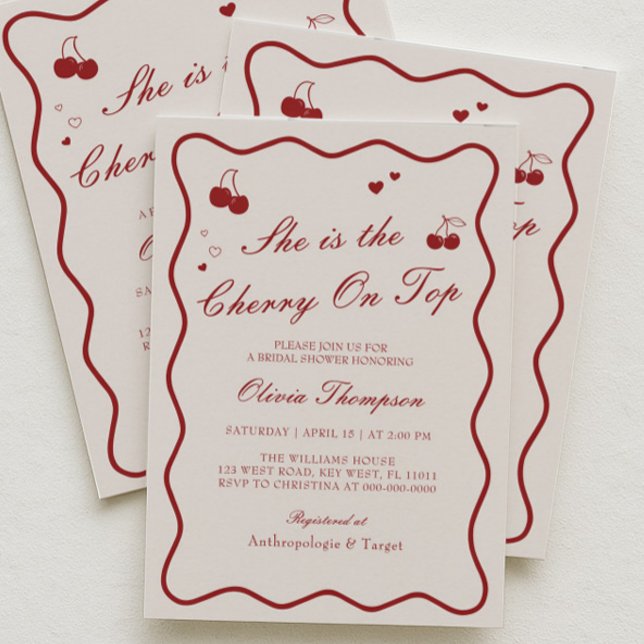 She is the
Cherry On Top
PLEASE JOIN US FOR
A BRIDAL SHOWER HONORING
Olivia Thompson
SATURDAY | APRIL 15 | AT 2:00 PM
THE WILLIAMS HOUSE
123 WEST ROAD, KEY WEST, FL 11011
RSVP TO CHRISTINA AT 000-000-0000
Registered at
Anthropologie & Target
She is the
Cherry
A P
O
SA
12
RS